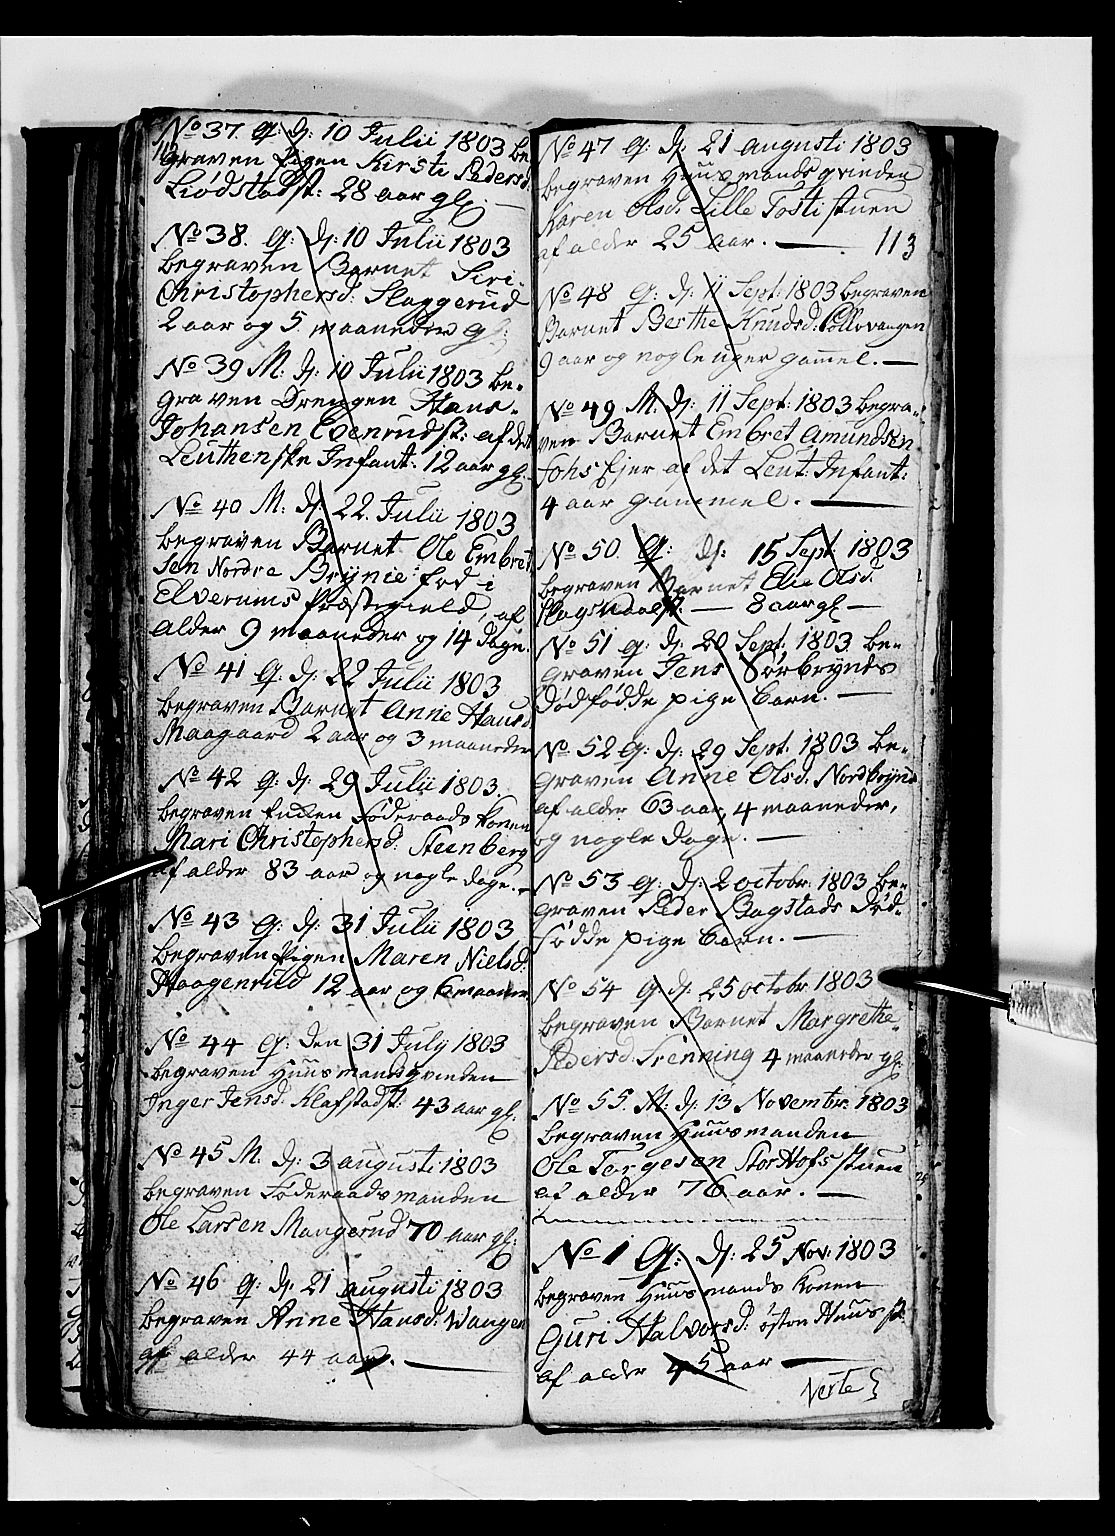 No 37. Q: d: 10 Julii 1803 be
graven Pigen Kirsti Pedersd:
Liødstadst: 28 aar gl.
No 38. Q: d: 10 Julii 1803
begraven Barnet Siri
Christophersd: Slaggerud
2 aar og 5 maaneder gl:
No 39 M: d: 10 Julii 1803 be-
graven Drengen Hans
Johansen Evenrudst: af det
Leuthenske Infant: 12 aar gl.
No 40 M: d: 22. Julii 1803
begraven Barnet Ole Embret
sen Nordre Brynie fød i
Elverums Præstegield, af
alder 9 maaneder og 14 dage.
No 41 Q: d: 22 Julii 1803
begraven Barnet Anne Hansd
Maagaard 2 aar og 3 maaneder
No 42 Q: d: 29 Julii 1803.
begraven Enken Føderaads Konen
Mari Christophersd: Steenberg
af alder 83 aar og nogle dage.
No 43 Q: d: 31 Julii 1803
begraven Pigen Maren Nielsd:
Haagenrud 12 aar og 6 maaneder
No 44 Q: den 31 July 1803
begraven Huusmandsqvinden
Inger Jensd. Klafstadst: 43 aar gl.
No 45 M. d: 3 augusti 1803
begraven Føderaadsmanden
Ole Larsen Mangerud 70 aar gl:
No 46 Q: d: 21 augusti 1803
begraven Anne Hansd: Wangen
af alder 44 aar.
No 47 Q: d: 21 augusti 1803
begraven Huusmandsqvinden
Karen Olsd. Lille Tosti stuen
af alder 25 aar. 113
No 48 Q: d: 11 Sept: 1803 begraven
Barnet Berthe Knudsd: Collovangen
9 aar og nogle uger gammel.
No 49 M: d: 11 Sept: 1803 begra-
ven Barnet Embret Amundsen
Fohs Ejer af det Leut: Infant:
4 aar gammel.
No 50. Q: d: 15 Sept: 1803
begraven Barnet Elie Olsd.
8 aar gl
No 51 Q: d: 20 Sept. 1803. be-
graven Jens Sørbrynds
dødfødde pige barn.
No 52 Q: d: 29 Sept: 1803 be-
graven Anne Olsd. Nordbrynd
af alder 63 aar, 4 maaneder,
og nogle dage.
No 53 Q: d: 2 octobr. 1803 be-
graven Peder Bagstads død-
fødde pige barn.
No 54 Q: d: 25 octobr 1803
begraven Barnet Margrethe
Pedersd: Srenning 4 maaneder gl.
No 55. M: d: 13 Novembr: 1803
begraven Huusmanden
Ole Torgesen StorHofsstuen
af alder 76 aar.
No 1 Q: d: 25 Nov: 1803
begraven Huusmands Konen
Guri Halvorsd: østen Huus st
af alder 45 aar
Verte